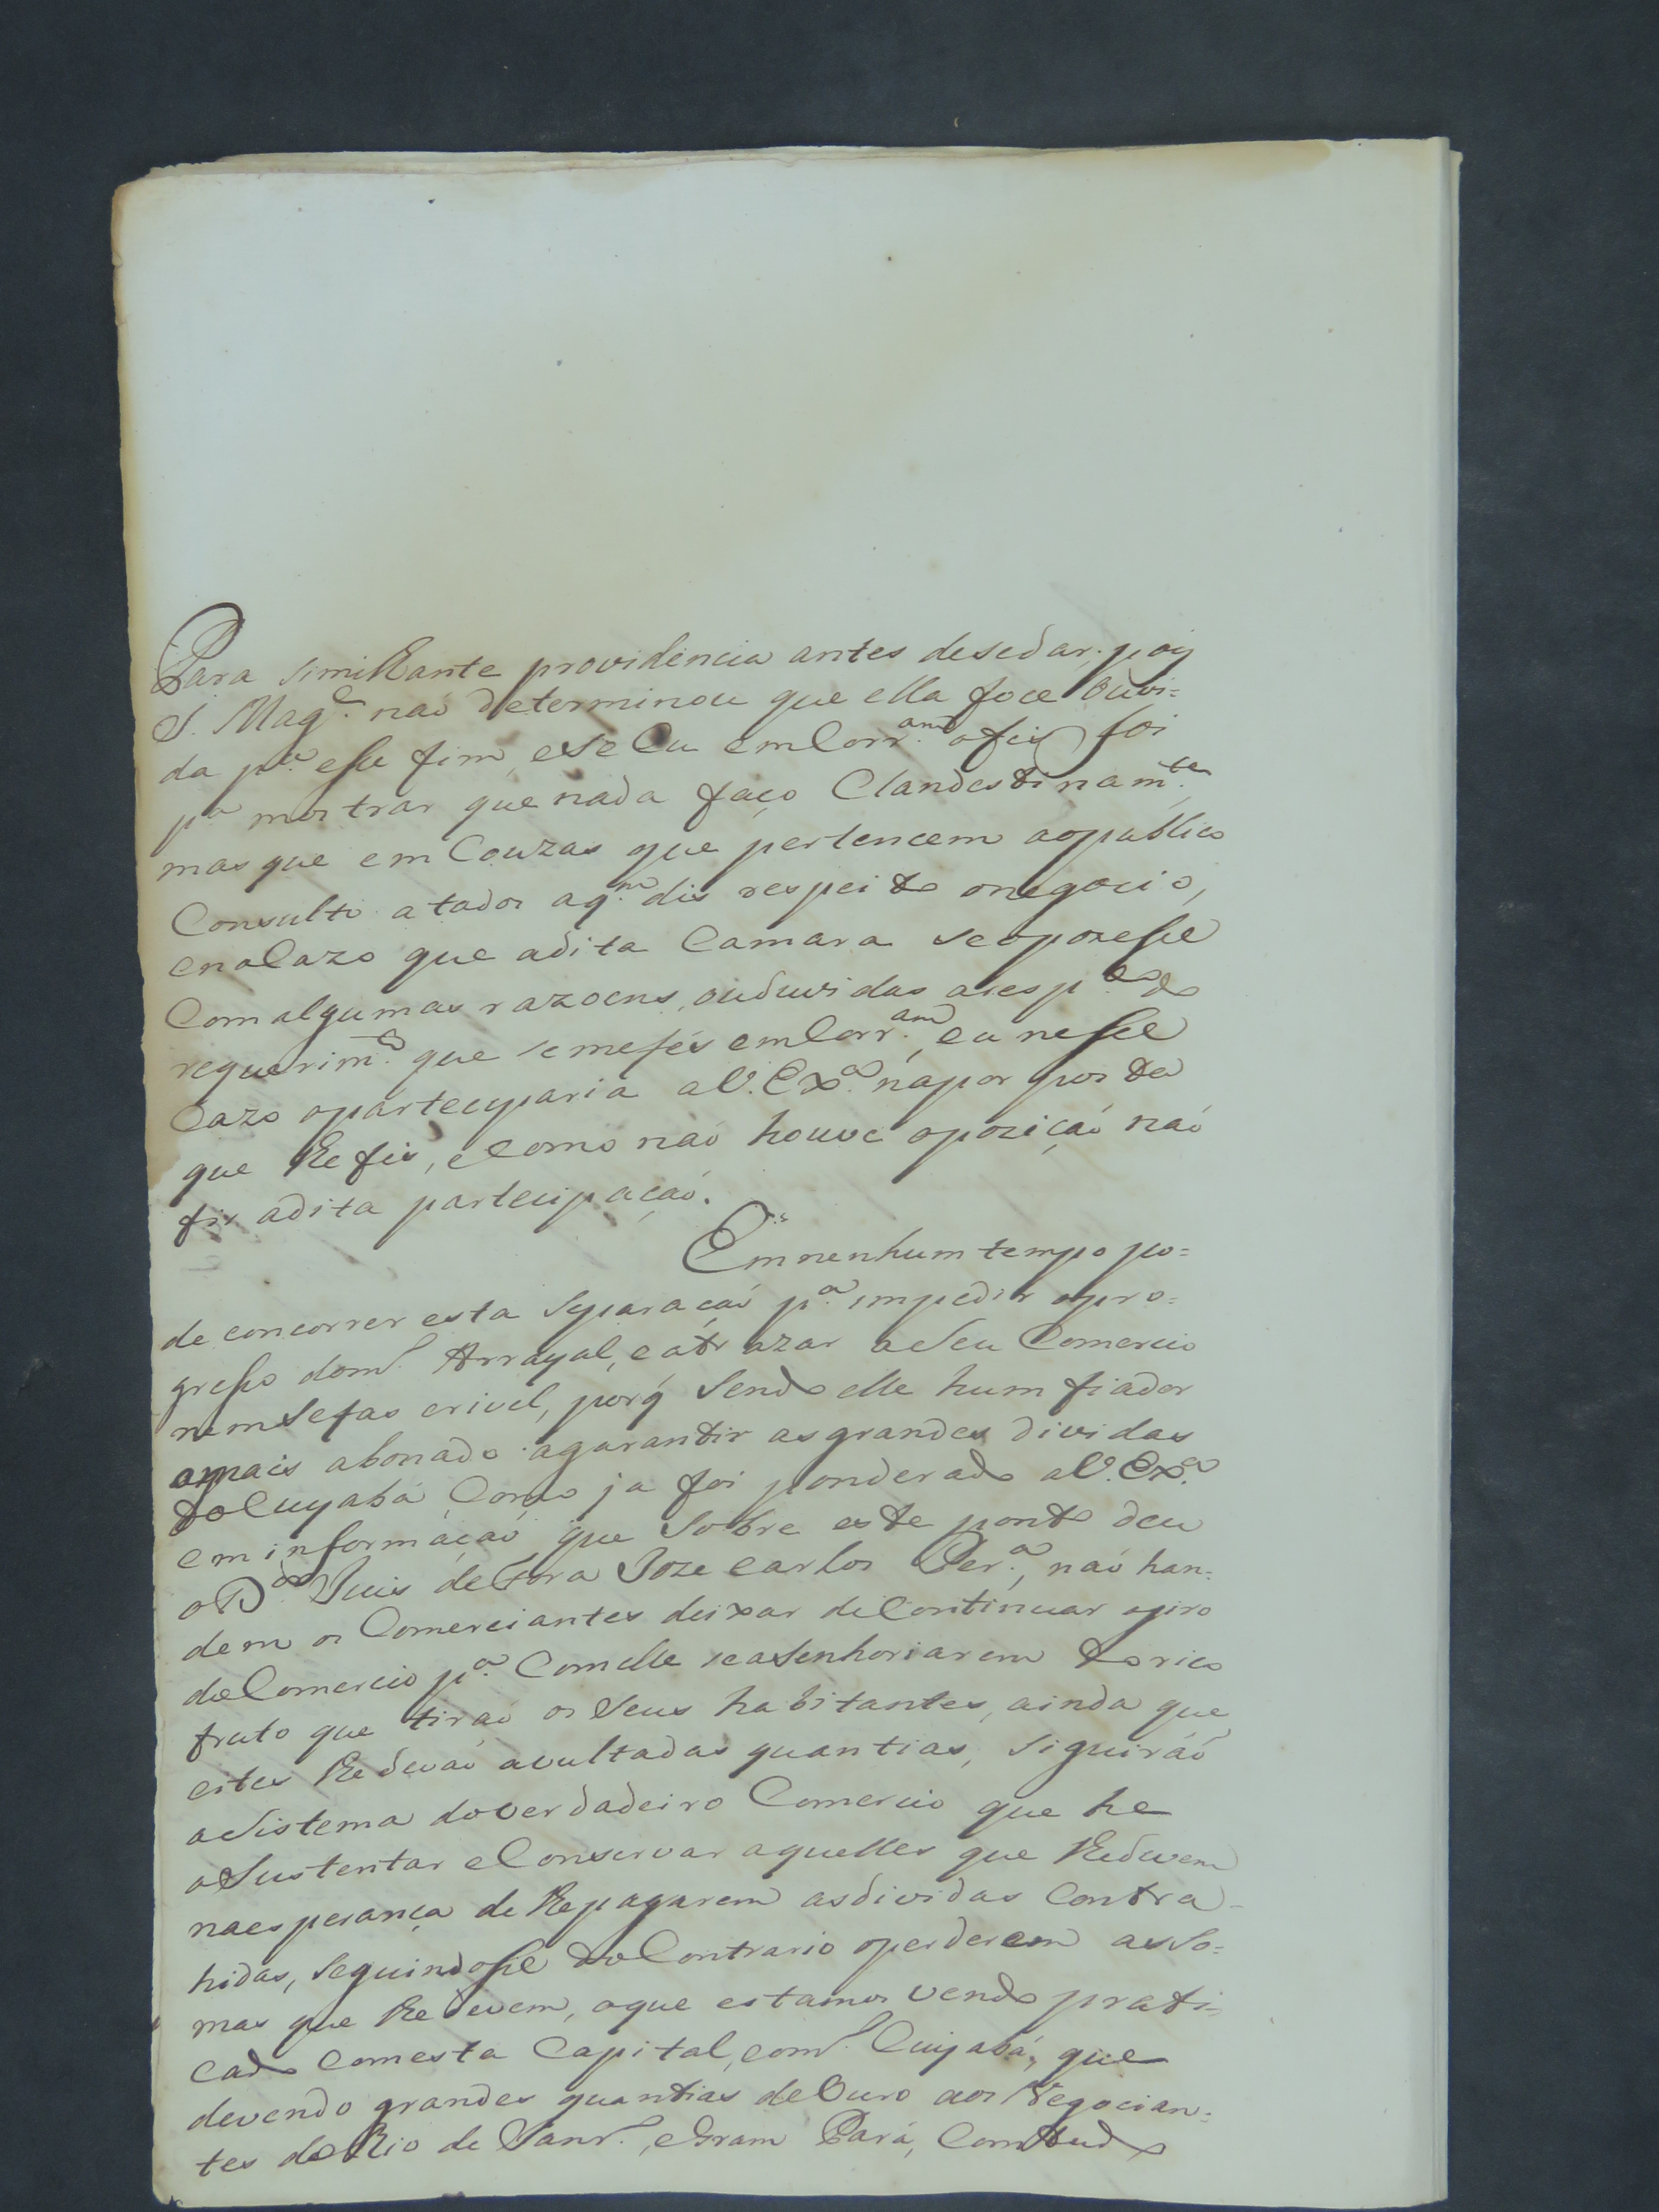 Para similhante providencia antes desedar; pois
S. Mag.e naõ determinou que ella foce Ouvi=
da p.a esse fim, eseeu emCorr.am ofis foi
p.a mostrar que nada faço Clandestinam.te
mas que em Couzas que pertencem aopublico
Consulto atados aq.m dis respeito onegocio,
enoCazo que adita Camara seopozesse
Com algumas razoens, ouduvidas aresp.to do
requerim.to que semefés emCorr.am, eu nesse
Cazo oparteciparia aV. Ex.a naproposta
que lhefis, eComo naõ houve opoziçaõ naõ
fis adita partecipaçaõ.
Emnenhum tempo po=
de concorrer esta Separaçaõ p.a impedir opro=
gresso dom.o Arrayal, eatrazar oSeu Comercio
nemSefas crivel, porq Sendo elle hum fiador
omais abonado agarantir asgrandes dividas
doCuyabá Como ja foi ponderado aV. Ex.a
em informaçaõ que Sobre este ponto deu
oD.or Juis deFora Joze Carlos Per.a, naõ han=
dem os Comerciantes deixar deContinuar ogiro
doComercio p.a Comelle seaSenhoriarem dorico
fruto que tiraõ os Seus habitantes, ainda que
estes lhedevaõ avultadas quantias, Siguiráõ
oSistema doverdadeiro Comercio que he
oSustentar eConservar aquelles que lhedevem
naesperança de lhepagarem asdividas Contra=
hidas, Seguindosse doContrario operderem asSo=
mas que lhe devem, oque estamos vendo prati=
cado Comesta Capital, eom.o Cuyabá, que
devendo grandes quantias deOuro aos Negocian=
tes do Rio de Janr.o, eGram Pará, Comtudo